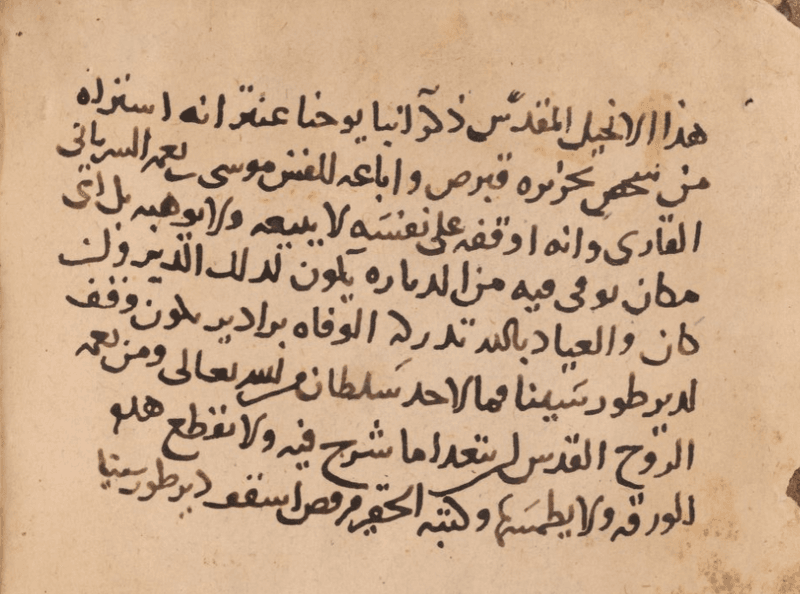 هذا الانجيل المقدس ذكر انبا يوحنا عنتر انه استراه
من شخص بجزيره قبرص واباعه للقس موسى بعمه السرياني
القارى وانه اوقفه على نفسه لا يبيعه ولا يوهبه بل اي
مكان توفى فيه من الدياره يكون لذلك الدير وان
كان والعياد بالله تدركه الوفاه برا دير يكون وقف
لدير طور سينا فما لاحد سلطان من الله تعالى ومن نعمه
الروح القدس ان يتعدا ما شرح فيه ولا يقطع هده
الورقه ولا يطمسها وكتبه الحقير مرقص اسقف دير طور سينا